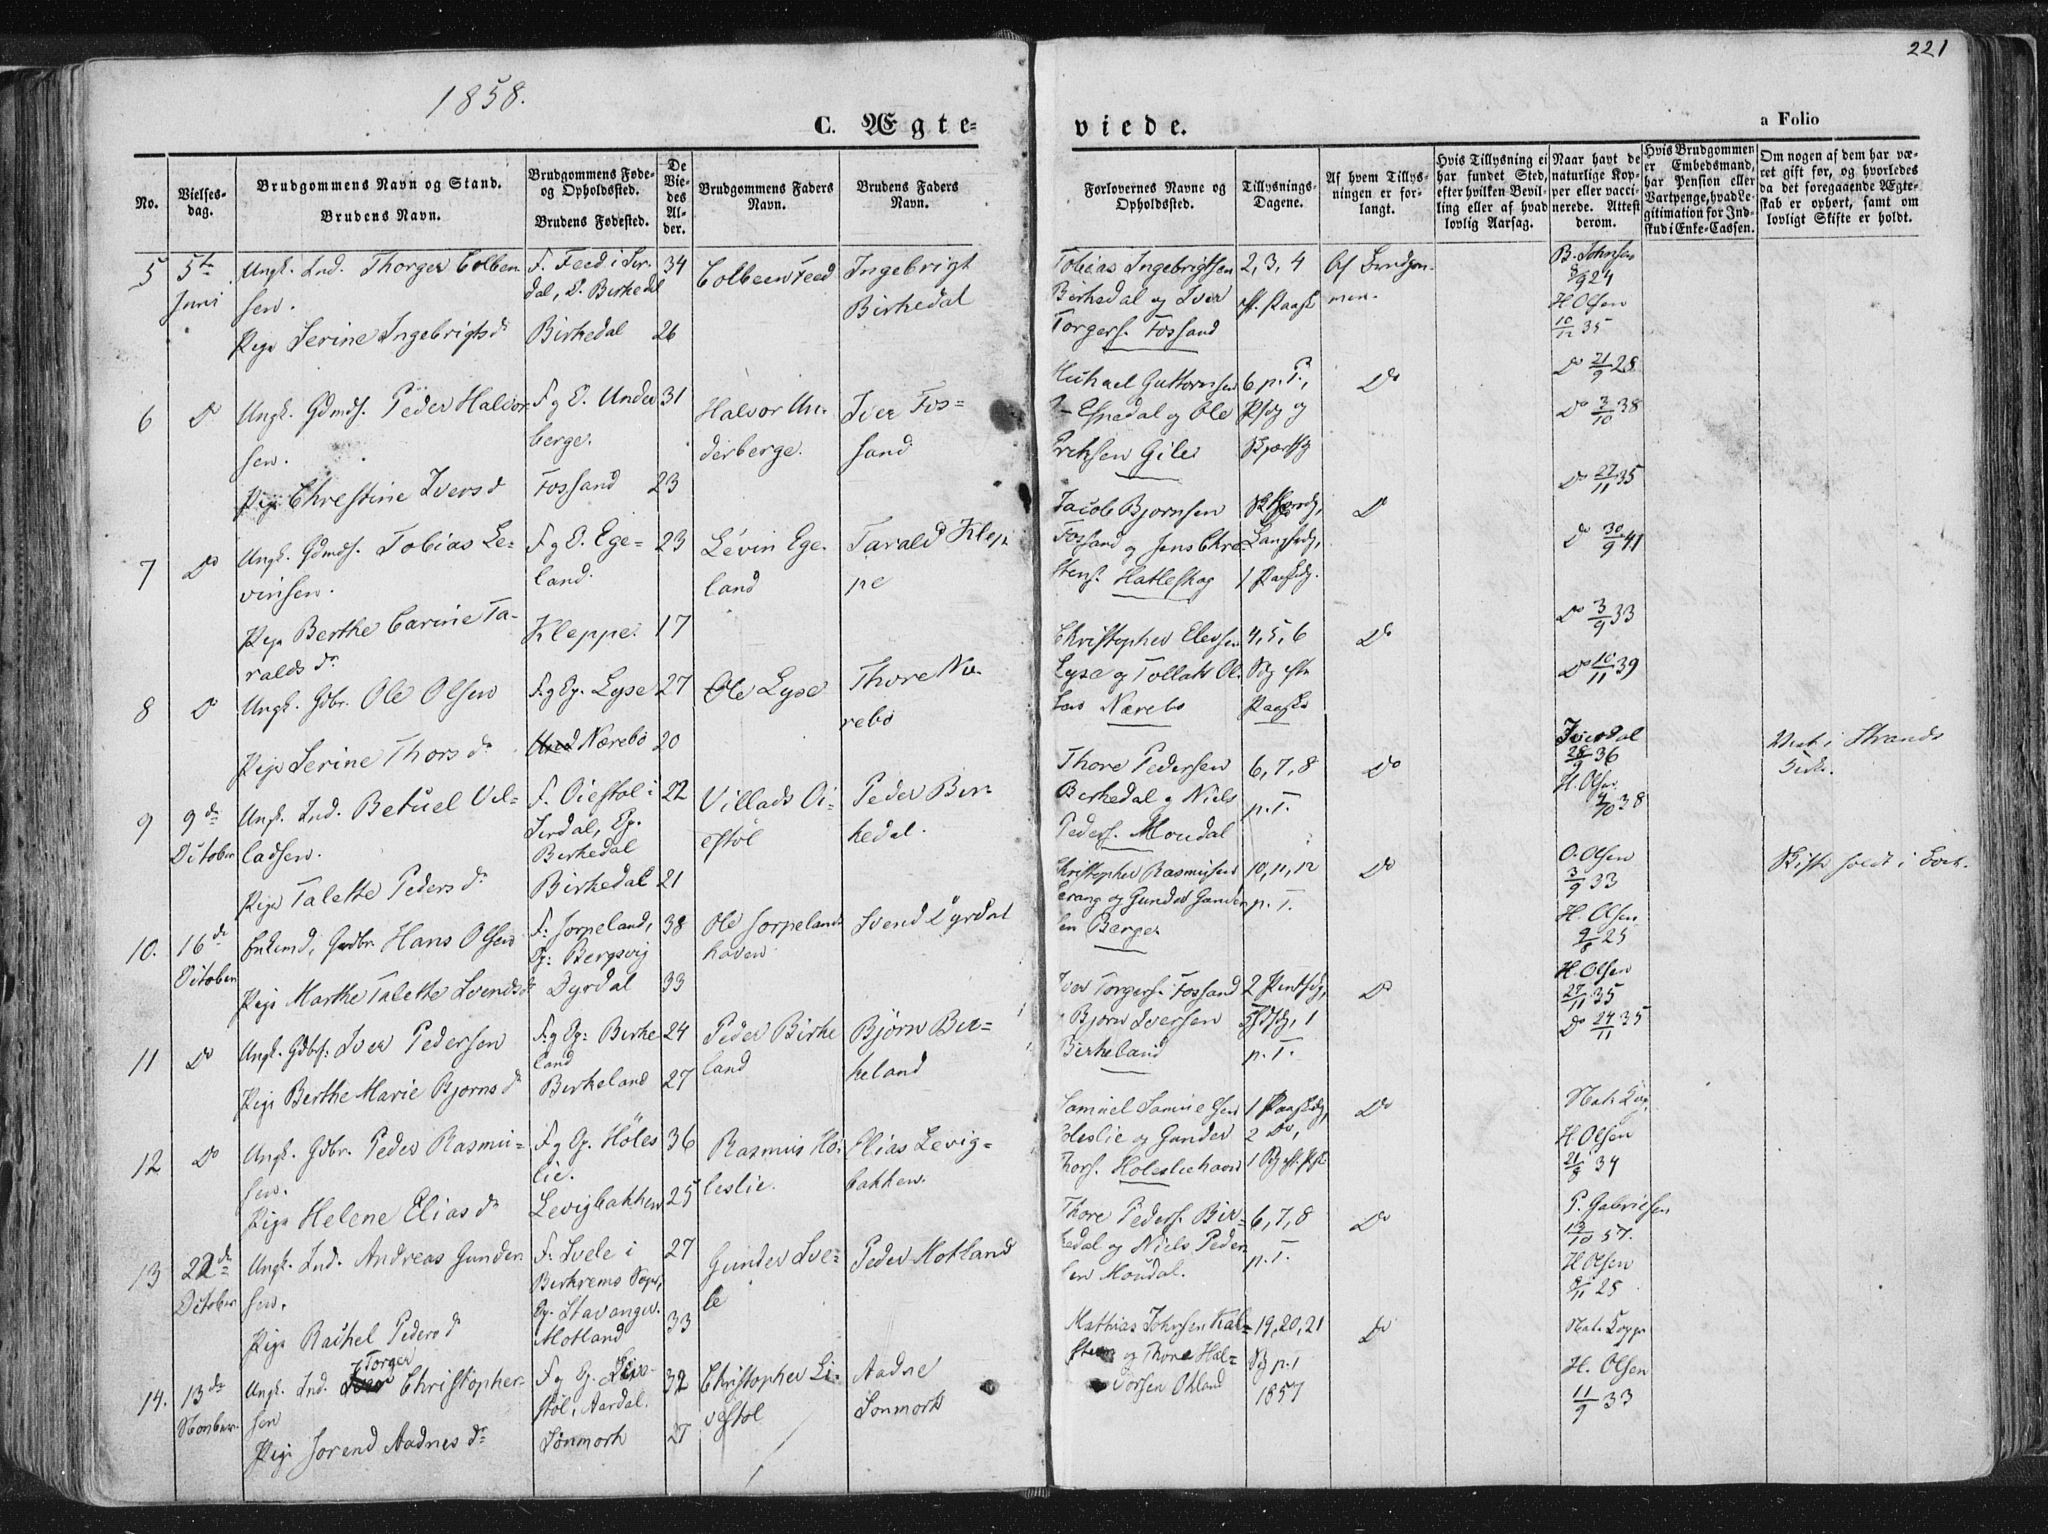 221
1858.
C. Ægte-
viede.
a Folio
No.
Vielses-
dag.
Brudgommens Navn og Stand.
Brudens Navn.
Brudgommens Føde-
og Opholdssted.
Brudens Fødested.
De
Vie-
des
Al-
der.
Brudgommens Faders
Navn.
Brudens Faders
Navn.
Forlovernes Navne og
Opholdssted.
Tillysnings-
Dagene.
Af hvem Tillys-
ningen er for-
langt.
Hvis Tillysning ei
har fundet Sted,
efter hvilken Bevil-
ling eller af hvad
lovlig Aarsag.
Naar havt de
naturlige Kop-
per eller vacci-
nerede. Attest
derom.
Hvis Brudgommen
er Embedsmand,
har Pension eller
Vartpenge, hvad Le-
gitimation for Ind-
skud i Enke-Cassen.
Om nogen af dem har væ-
ret gift før, og hvorledes
da det foregaaende Ægte-
skab er ophørt, samt om
lovligt Skifte er holdt.
5
5te
Juni
Ungk. Ind. Thorger Colben
sen.
Pige Serine Ingebrigtsd
F. Feed i Sir
dal, O. Birkedal
Birkedal
34
26
Colbeen Feed
Ingebrigt
Birkedal
Tobias Ingebrigtsen
Birkedal og Iver
Torgers. Fossand
2, 3, 4
Af Brudgom
men.
B. Johnsen
8/9 24
H Olsen
10/12 35
6
Do
Ungk. Gdmds. Peder Halvor
sen.
Pige Christine Iversd
F. g O. Under
berge.
Fossand
31
23
Halvor Un-
derberge.
Iver Fos=
sand
Michael Guttormsen
Espedal og Ole
Eriksen Gilei
6 p. T.,
Do
Do 21/9 28
Do 3/10 38
7
Do
Ungk. Gdmds. Tobias Le-
vinsen.
Pige Berthe Carine Ta-
ralds dr
F. g O. Ege=
land.
Kleppe.
23
17
Levin Ege-
land
Tarald Klep
pe
Jacob Bjornsen
Fossand og Jens Chri-
stens. Hatleskog
Do
Do 27/11 35
Do 30/9 41
8
Do
Ungk. Gdbr. Ole Olsen
Pige Serine Thorsd
F. g Og. Lyse
Nærebo
27
20
Ole Lyse
Thore Næ-
rebo
Christopher Elevsen
Lyse og Tollak Ol-
sen Nærebo
4, 5, 6
Do
Do 3/9 33
Do 10/11 39
9
9de
October
Ungk. Ind. Betuel Vil-
ladsen.
Pige Talette Pedersd
F. Oiestøl i
Sirdal, Og.
Birkedal
Birkedal
22
21
Villads Oi-
estøl
Peder Bir-
kedal.
Thore Pedersen
Birkedal og Niels
Peders. Moudal
6, 7, 8
p. T.
Do
28/9 36
H. Olsen
4/10 38
10.
16de
October
Enkemd, Gdbr. Hans Olsen
Pige Marthe Talette Svendsd
F: Jorpeland,
Og: Bergsvig
Dyrdal
38
33
Ole Jorpelands
haven
Svend Dyrdal
Christopher Rasmussen
og Gunder Gunder
sen Berge
10, 11, 12
p. T.
Do
O. Olsen
3/9 33
H. Olsen
9/8 25
11
Do
Ungk. Gdbs: Iver Pedersen
Pige Berthe Marie Bjornsd
F. g Og: Birke
land
Birkeland
24
27
Peder Birke
land
Bjørn Bir=
keland
Iver Torgers. Fossand
Bjørn Iversen
Birkeland
p. T.
Do
H. Olsen
27/11 35
Do 24/11 35
12
Do
Ungk. Gdbr. Peder Rasmu-
sen.
Pige Helene Eliasd
F. g Og. Høles
lie.
Levigbakken
36
25
Rasmus Hø-
leslie.
Elias Levig=
bakken.
Samuel Samuelsen
Holeslie og Gunder
Thors. Holesliehavn
Do
Nat. Kop.
H Olsen
21/8 34
13
22de
October
Ungk. Ind. Andreas Gunder
sen.
Pige Rachel Pedersd
F. Svele i
Birkrems Sogn,
Og. Stavanger.
Motland
27
33
Gunder Sve-
le
Peder Motland
Thore Peders. Bir-
kedal og Niels Peder
sen Moudal.
6, 7, 8
p. T.
Do
P. Gabrielsen
13/10 57.
H Olsen
8/11 25
14.
13de
Novber.
Ungk. Ind. Torger Christopher-
sen
Pige Jorend Aadnesdr
F. g Og. Live-
støl, Aardal.
Lønmork
32
27
Christopher Li-
vestøl
Aadne
Lønmork
Mathias Johnsen Kal-
og Thore Hal=
vorsen Okland
19, 20, 21
1857
Do
Nat. Kopper
H. Olsen
11/9 33